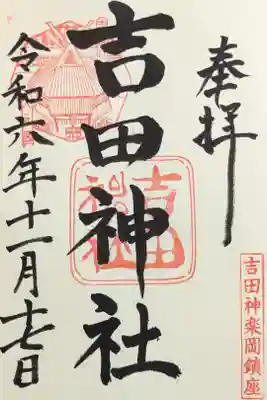 奉拝
吉田神社
令和六年十一月十七日
吉田神楽岡鎮座
吉田
神社